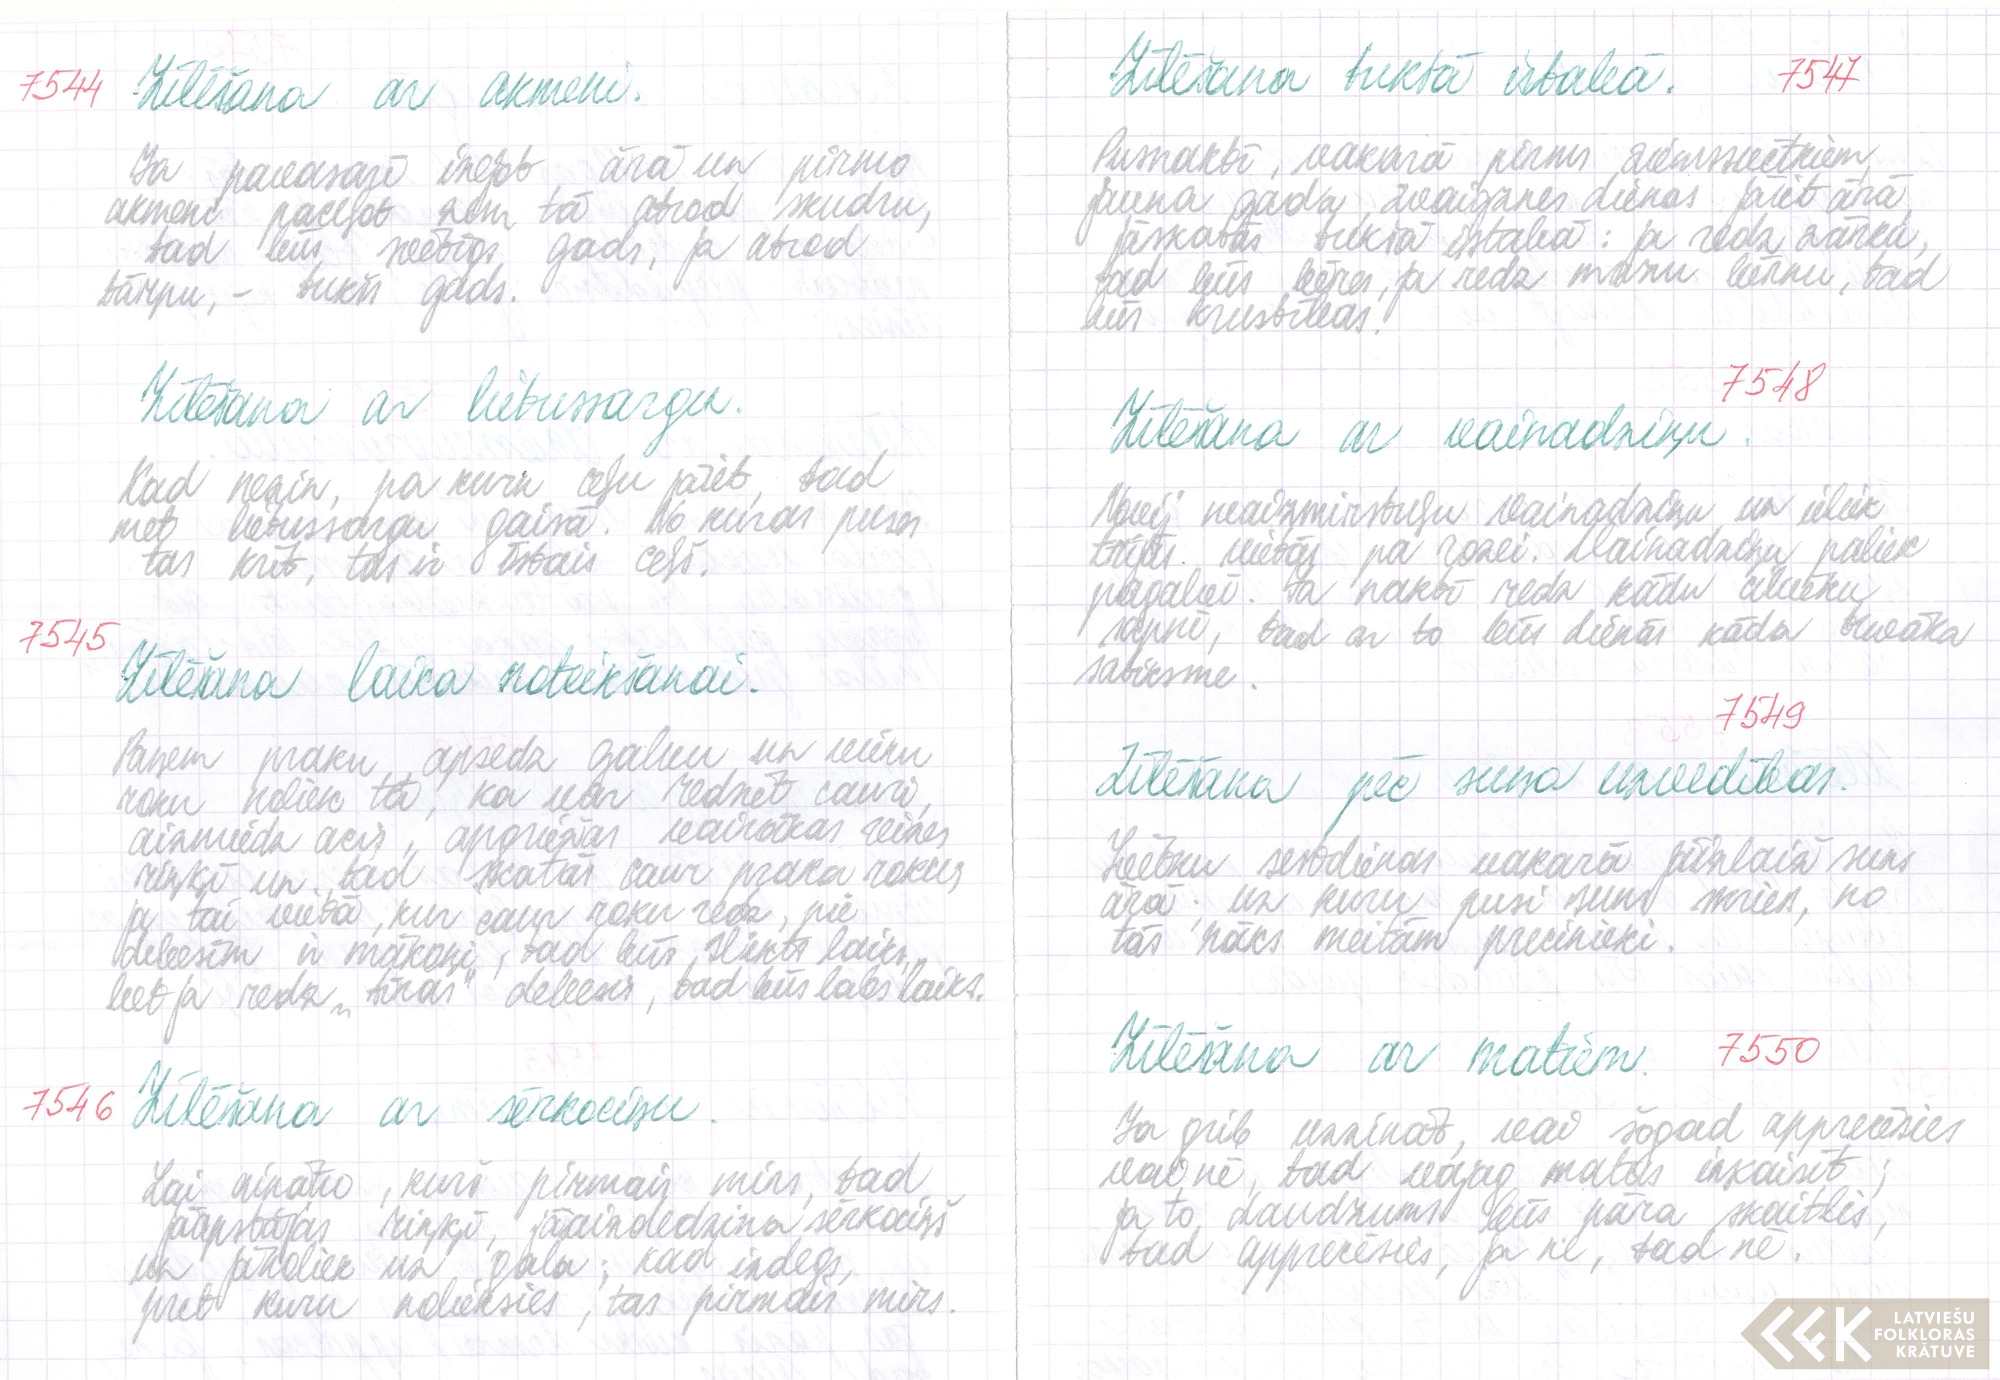 7544
Zīlēšana ar akmeni.
Ja pavasarī izejot ārā un pirmo
akmeni paceļot zem tā atrod skudru,
tad būs svētīgs gads, ja atrod
tārpu, – tukšs gads.
Zīlēšana ar lietussargu.
Kad nezin, pa kuru ceļu jāiet, tad
met lietussargu gaisā. No kuras puses
tas krīt, tas ir īstais ceļš.
7545
Zīlēšana laika noteikšanai.
Paņem praku, apsedz galvu un vienu
roku noliek tā, ka var redzēt cauri,
aizmiedz acis, apgriežas vairākas reizes
riņķī un tad skatās caur praka rokus,
ja tai vietā, kur caur roku redz, pie
debesīm ir mākoņi, tad būs slikts laiks,
bet ja redz „tīras" debesis, tad būs labs laiks.
7546
Zīlēšana ar sērkociņu.
Lai zinātu, kurš pirmais mirs, tad
jāapstājas riņķī, jāaizdedzina sērkociņš
un jānoliek uz galda; kad izdegs,
pret kuru nolieksies, tas pirmais mirs.
Zīlēšana tukšā istabā.
7547
Pusnaktī, vakarā pirms ziemssvētkiem,
jauna gada, zvaigznes dienas jāiet ārā,
jāskatās tukšā istabā: ja redz zārku,
tad būs bēres, ja redz mazu bērnu, tad
būs krustības.
7548
Zīlēšana ar vainadziņu.
Novij neaizmirstuļu vainadziņu un ieliek
trijās vietās pa rozei. Vainadziņu paliek
pagalvī. Ja naktī redz kādu cilvēku
sapnī, tad ar to būs dienās kāda tuvāka
satiksme.
7549
Zīlēšana pēc suņa uzvedības.
Svētku sestdienas vakarā jāizlaiž suns
ārā; uz kuru pusi suns skries, no
tās nāks meitām precinieki.
Zīlēšana ar matiem.
7550
Ja grib uzzināt, vai šogad apprecēsies
vai nē, tad vajag matus izkaisīt;
ja to daudzums būs pāra skaitlis,
tad apprecēsies, ja nē, tad nē.
LATVIEŠU
FOLKLORAS
KRĀTUVE